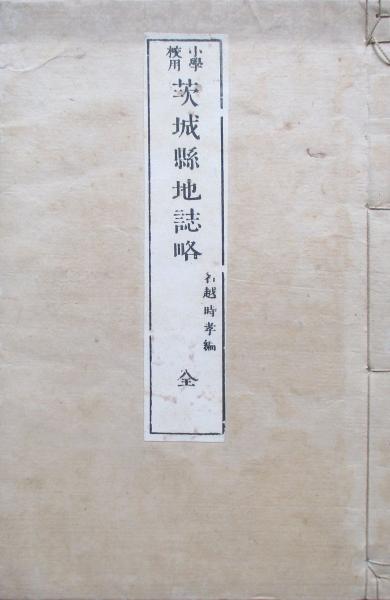 小學校用
茨城縣地誌略
名越時孝編
全